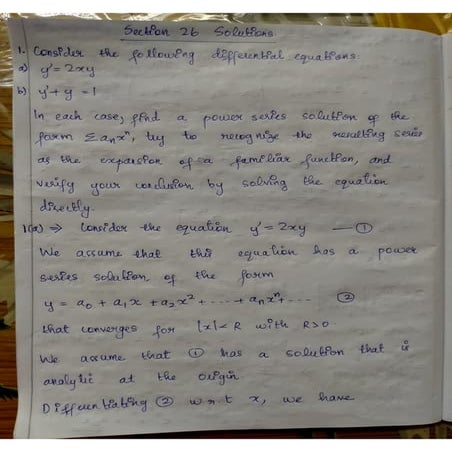 Section 26 Solutions
1. Consider the following differential equations.
a) y' = 2xy
b) y' + y = 1
In each case, find a power series solution of the
form Σaₙxⁿ, try to recognize the resulting series
as the expansion of a familiar function, and
verify your conclusion by solving the equation
directly.
1(a) ⇒ Consider the equation y' = 2xy —①
We assume that this equation has a power
series solution of the form
y = a₀ + a₁x + a₂x² + ..... + aₙxⁿ + .... ②
that converges for |x| < R with R>0.
We assume that ① has a solution that is
analytic at the origin
Differentiating ② w.r.t x, we have